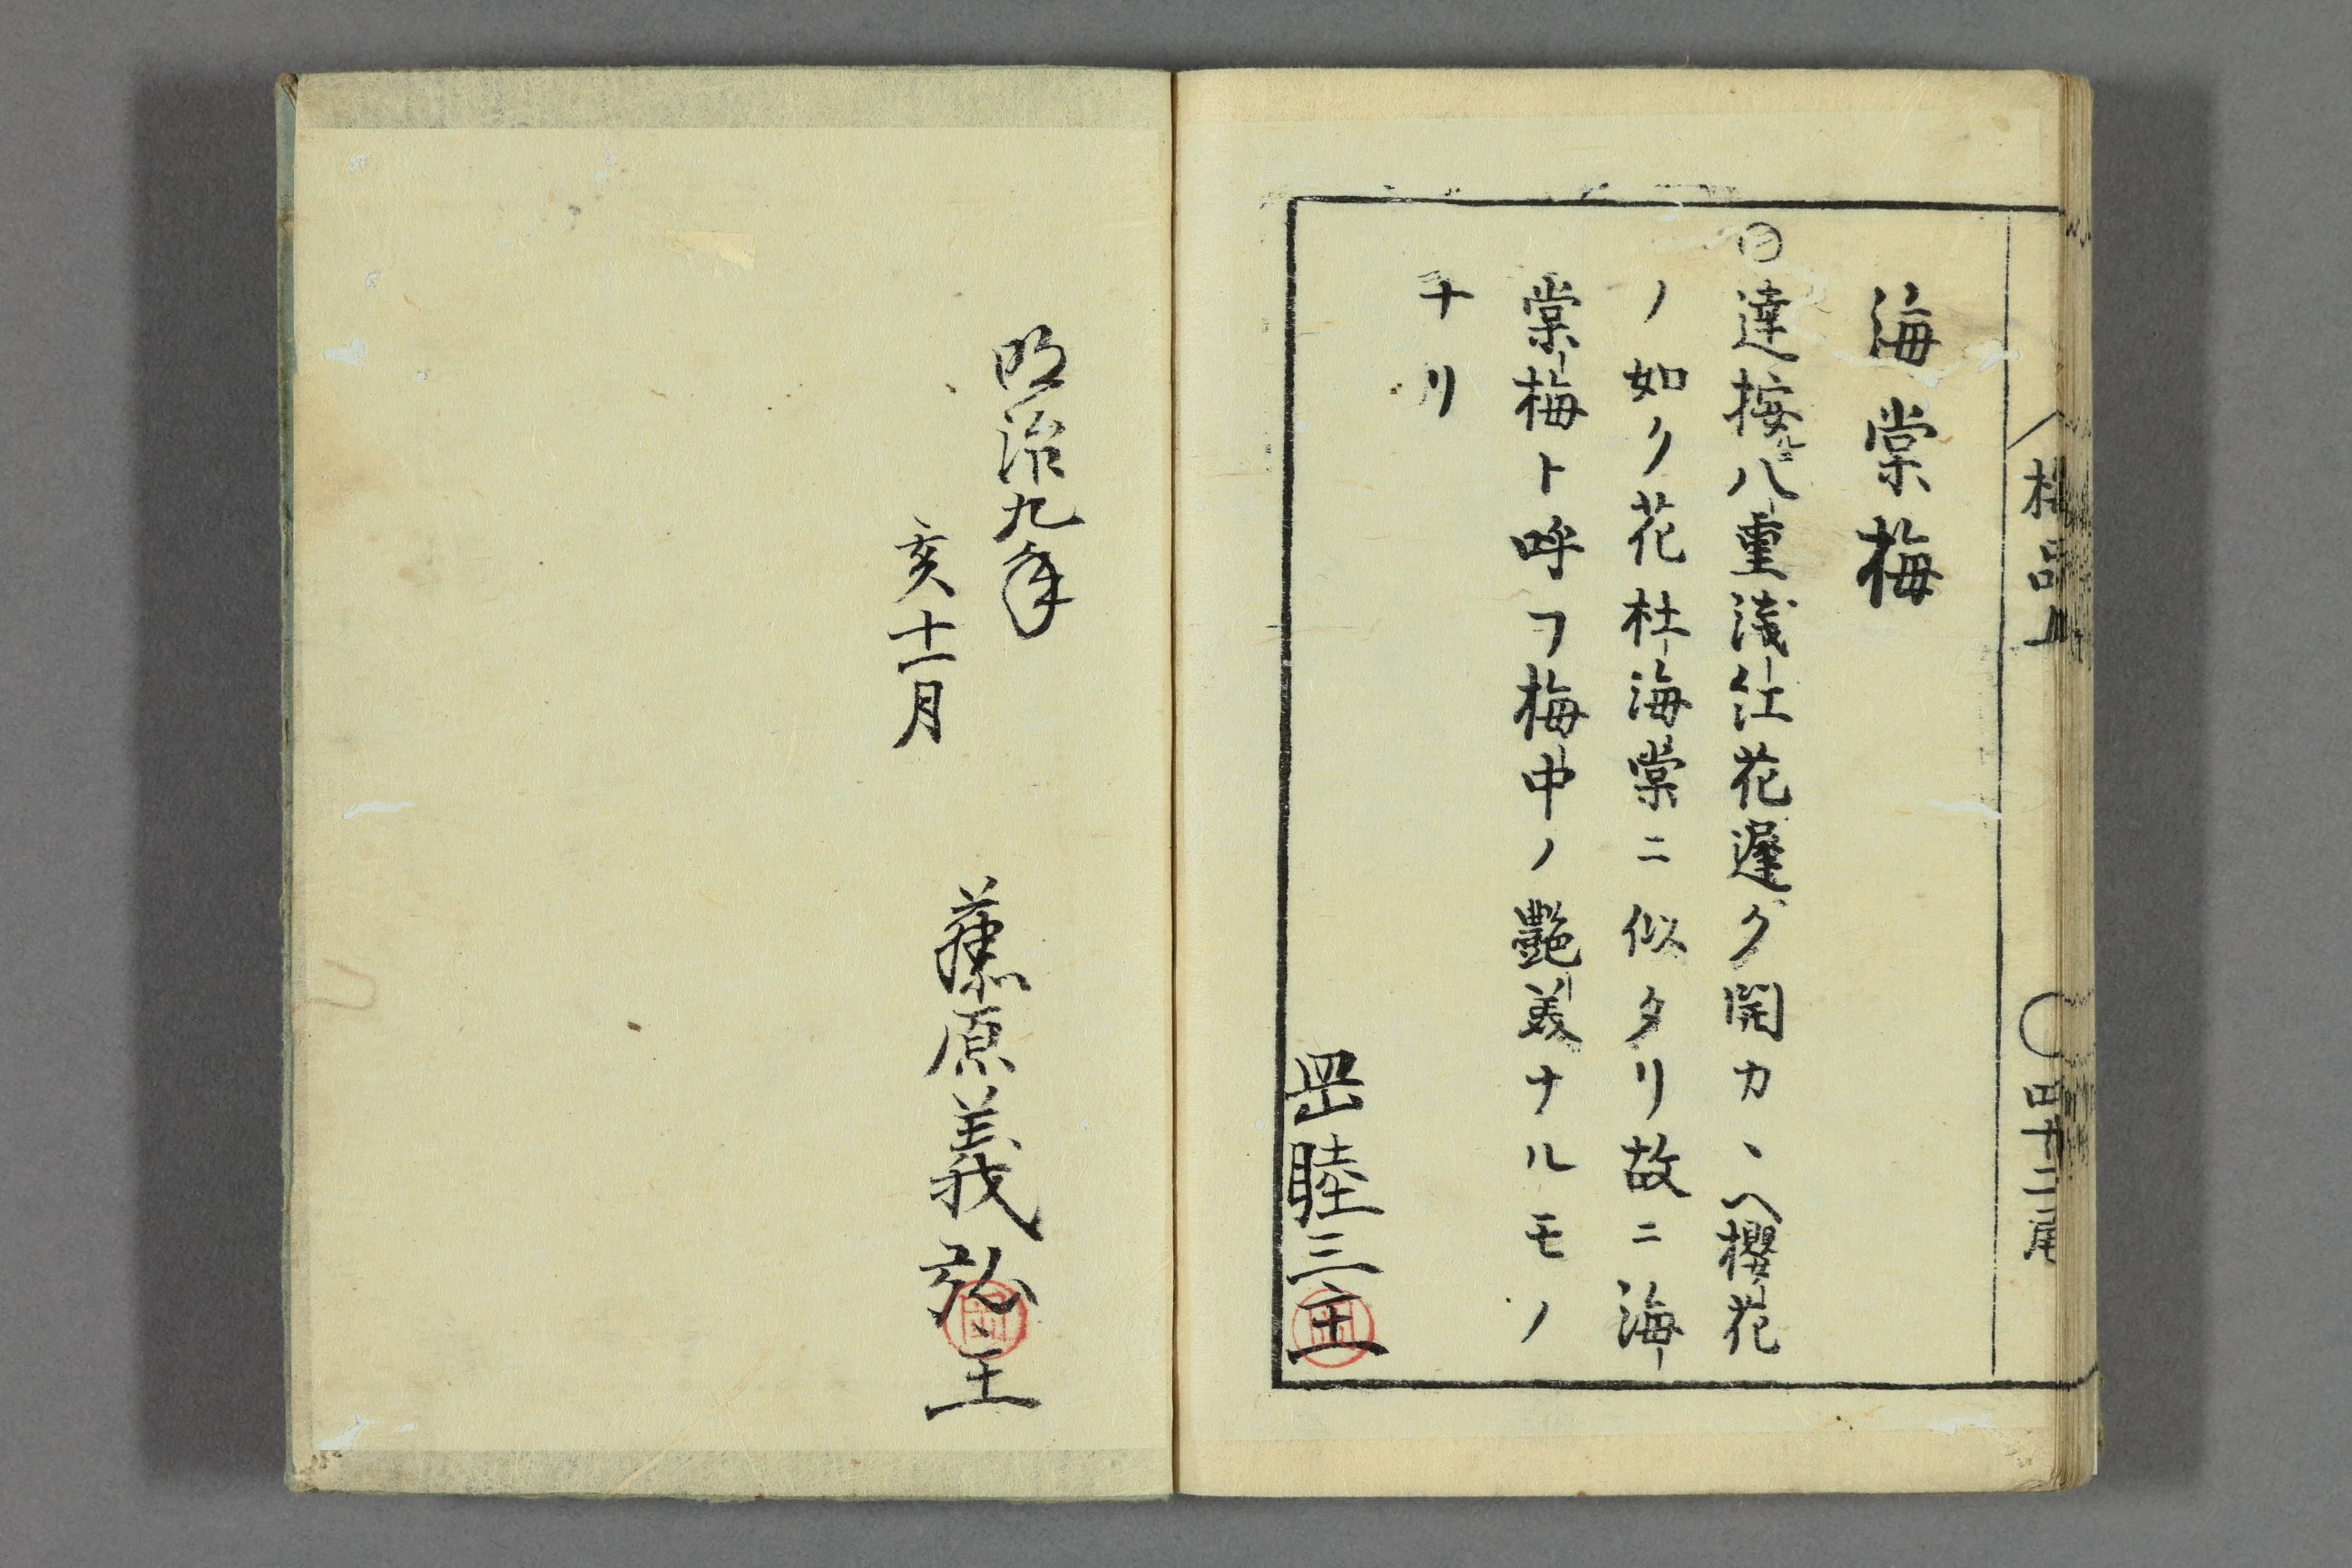 海棠梅
㊂達按八重淺紅花遲ク開カヽヘ櫻花
ノ如ク花杜海棠ニ似タリ故ニ海
棠梅ト呼フ梅中ノ艶美ナルモノ
ナリ
岡睦三主
明治九年
亥十一月
藤原義弘主